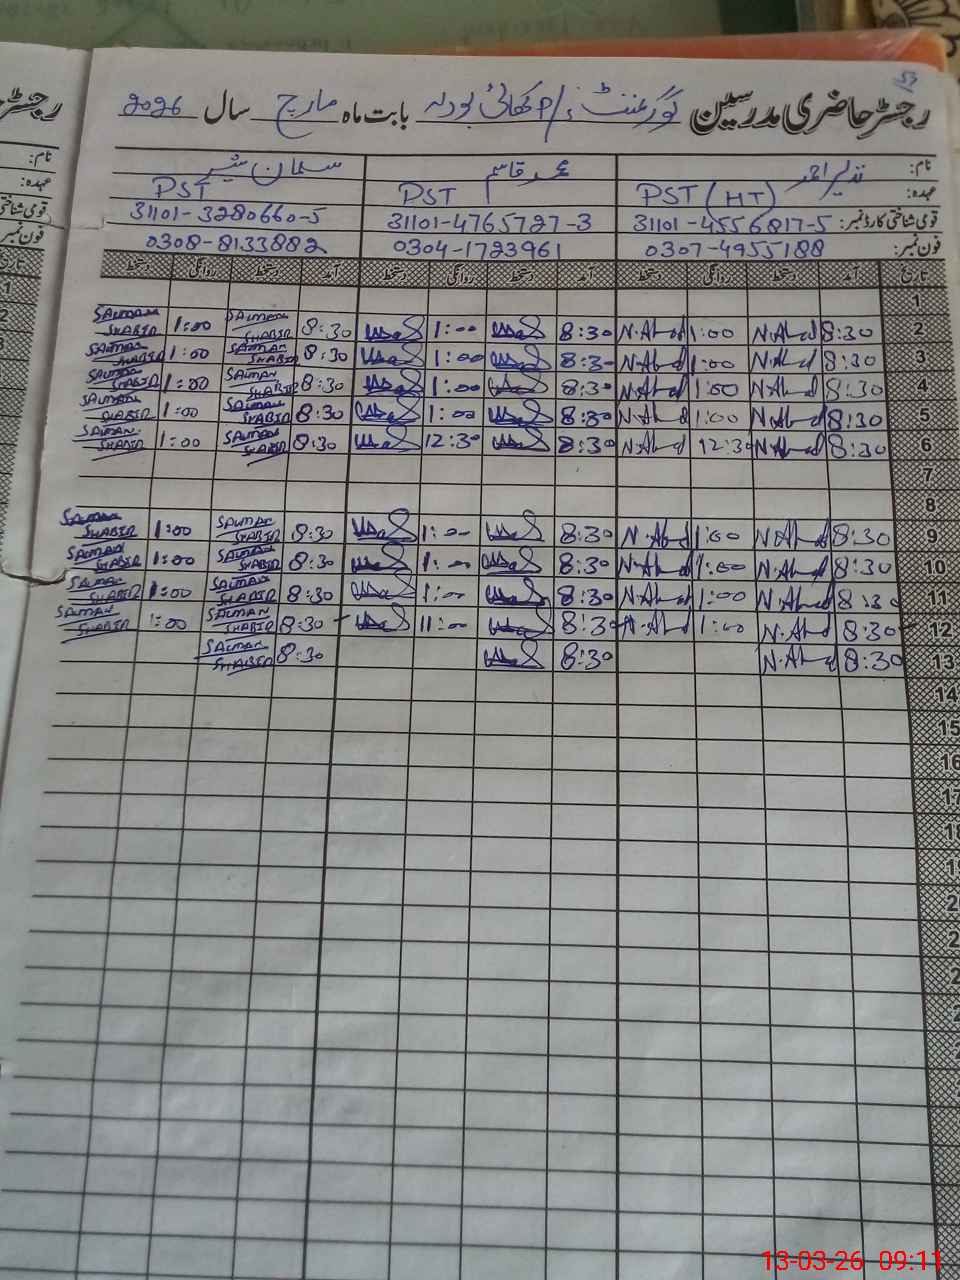 53
رجسٹر حاضری مدرسین گورنمنٹ P/S کھائی بودلہ بابت ماہ مارچ سال 2026
نام: نذیر احمد محمد قاسم سلمان شبیر
عہدہ: PST (HT) PST PST
قومی شناختی کارڈ نمبر: 31101-4556817-5 31101-4765727-3 31101-3280660-5
فون نمبر: 0307-4955188 0304-1723961 0308-8133882
تاریخ آمد دستخط روانگی دستخط آمد دستخط روانگی دستخط آمد دستخط روانگی دستخط
1
2 8:30 N.Ahmad 1:00 N.Ahmad 8:30 1:00 8:30 SALMAN SHABIR 1:00 SALMAN SHABIR
3 8:30 N.Ahmad 1:00 N.Ahmad 8:30 1:00 8:30 SALMAN SHABIR 1:00 SALMAN SHABIR
4 8:30 N.Ahmad 1:00 N.Ahmad 8:30 1:00 8:30 SALMAN SHABIR 1:00 SALMAN SHABIR
5 8:30 N.Ahmad 1:00 N.Ahmad 8:30 1:00 8:30 SALMAN SHABIR 1:00 SALMAN SHABIR
6 8:30 N.Ahmad 12:30 N.Ahmad 8:30 12:30 8:30 SALMAN SHABIR 1:00 SALMAN SHABIR
7
8
9 8:30 N.Ahmad 1:00 N.Ahmad 8:30 1:00 8:30 SALMAN SHABIR 1:00 SALMAN SHABIR
10 8:30 N.Ahmad 1:00 N.Ahmad 8:30 1:00 8:30 SALMAN SHABIR 1:00 SALMAN SHABIR
11 8:30 N.Ahmad 1:00 N.Ahmad 8:30 1:00 8:30 SALMAN SHABIR 1:00 SALMAN SHABIR
12 8:30 N.Ahmad 1:00 N.Ahmad 8:30 11:00 8:30 SALMAN SHABIR 1:00 SALMAN SHABIR
13 8:30 N.Ahmad 8:30 8:30 SALMAN SHABIR
14
15
16
17
18
13-03-26 09:11